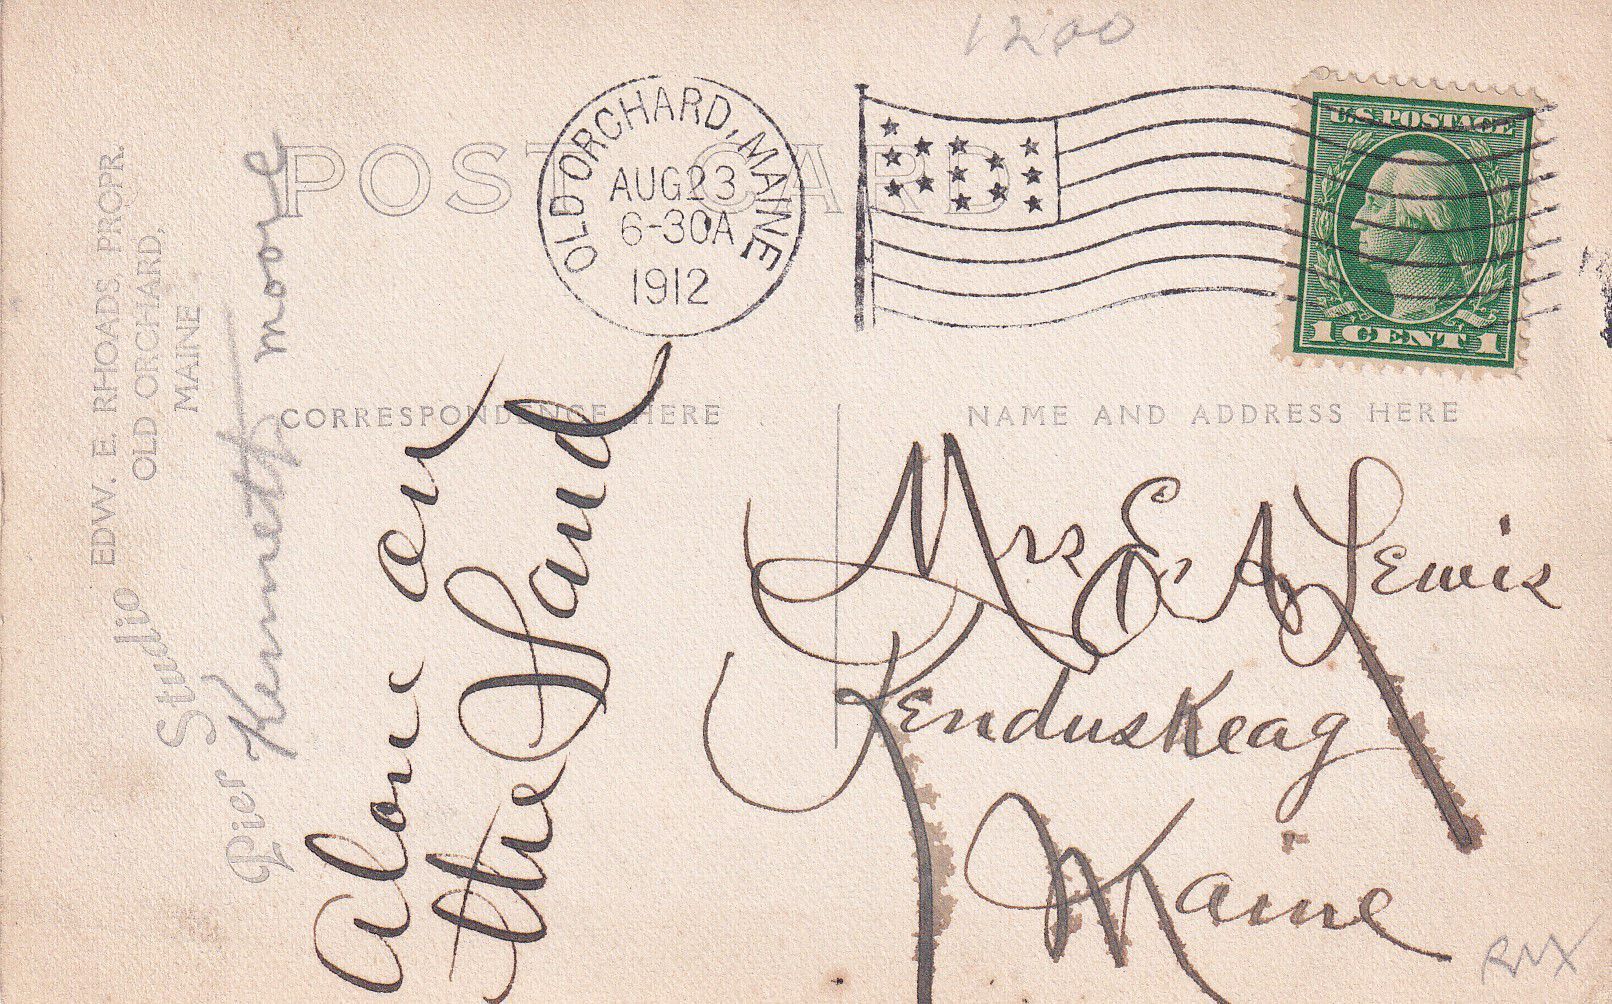 1200
POST CARD
OLD ORCHARD, MAINE
AUG 23
6-30A
1912
U.S. POSTAGE
1 CENT 1
Pier Studio
EDW. E. RHOADS, PROPR.
OLD ORCHARD,
MAINE
Kenneth Moore
CORRESPONDENCE HERE
NAME AND ADDRESS HERE
Alone on
the Sand
Mrs E. A. Lewis
Kenduskeag
Maine
RNX